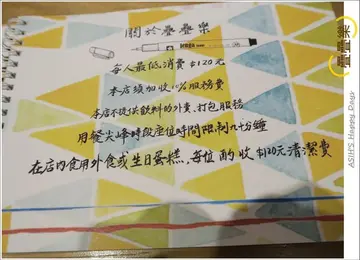 關於疊疊樂
每人最低消費$120元
本店須加收10%服務費
本店不提供飲料的外賣、打包服務
用餐尖峰時段座位時間限制九十分鐘
在店內食用外食或生日蛋糕，每位酌收$120元清潔費
疊疊樂
ASIHS Happy Days